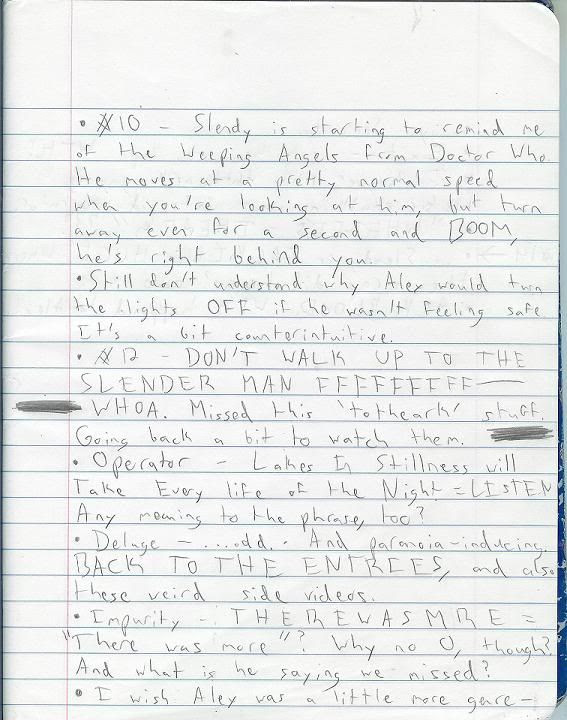 • #10 - Slendy is starting to remind me
of the Weeping Angels from Doctor Who.
He moves at a pretty normal speed
when you're looking at him, but turn
away even for a second and BOOM,
he's right behind you.
• Still don't understand why Alex would turn
the lights OFF if he wasn't feeling safe
It's a bit counterintuitive.
• #12 - DON'T WALK UP TO THE
SLENDER MAN FFFFFFFFF—
WHOA. Missed this 'totheark' stuff.
Going back a bit to watch them.
• Operator - Lakes In Stillness will
Take Every life of the Night = LISTEN
Any meaning to the phrase, too?
• Deluge - ...odd. - And paranoia-inducing.
BACK TO THE ENTREES, and also
these weird side videos.
• Impurity - THEREWASMRE =
"There was more"? Why no O, though?
And what is he saying we missed?
• I wish Alex was a little more genre-